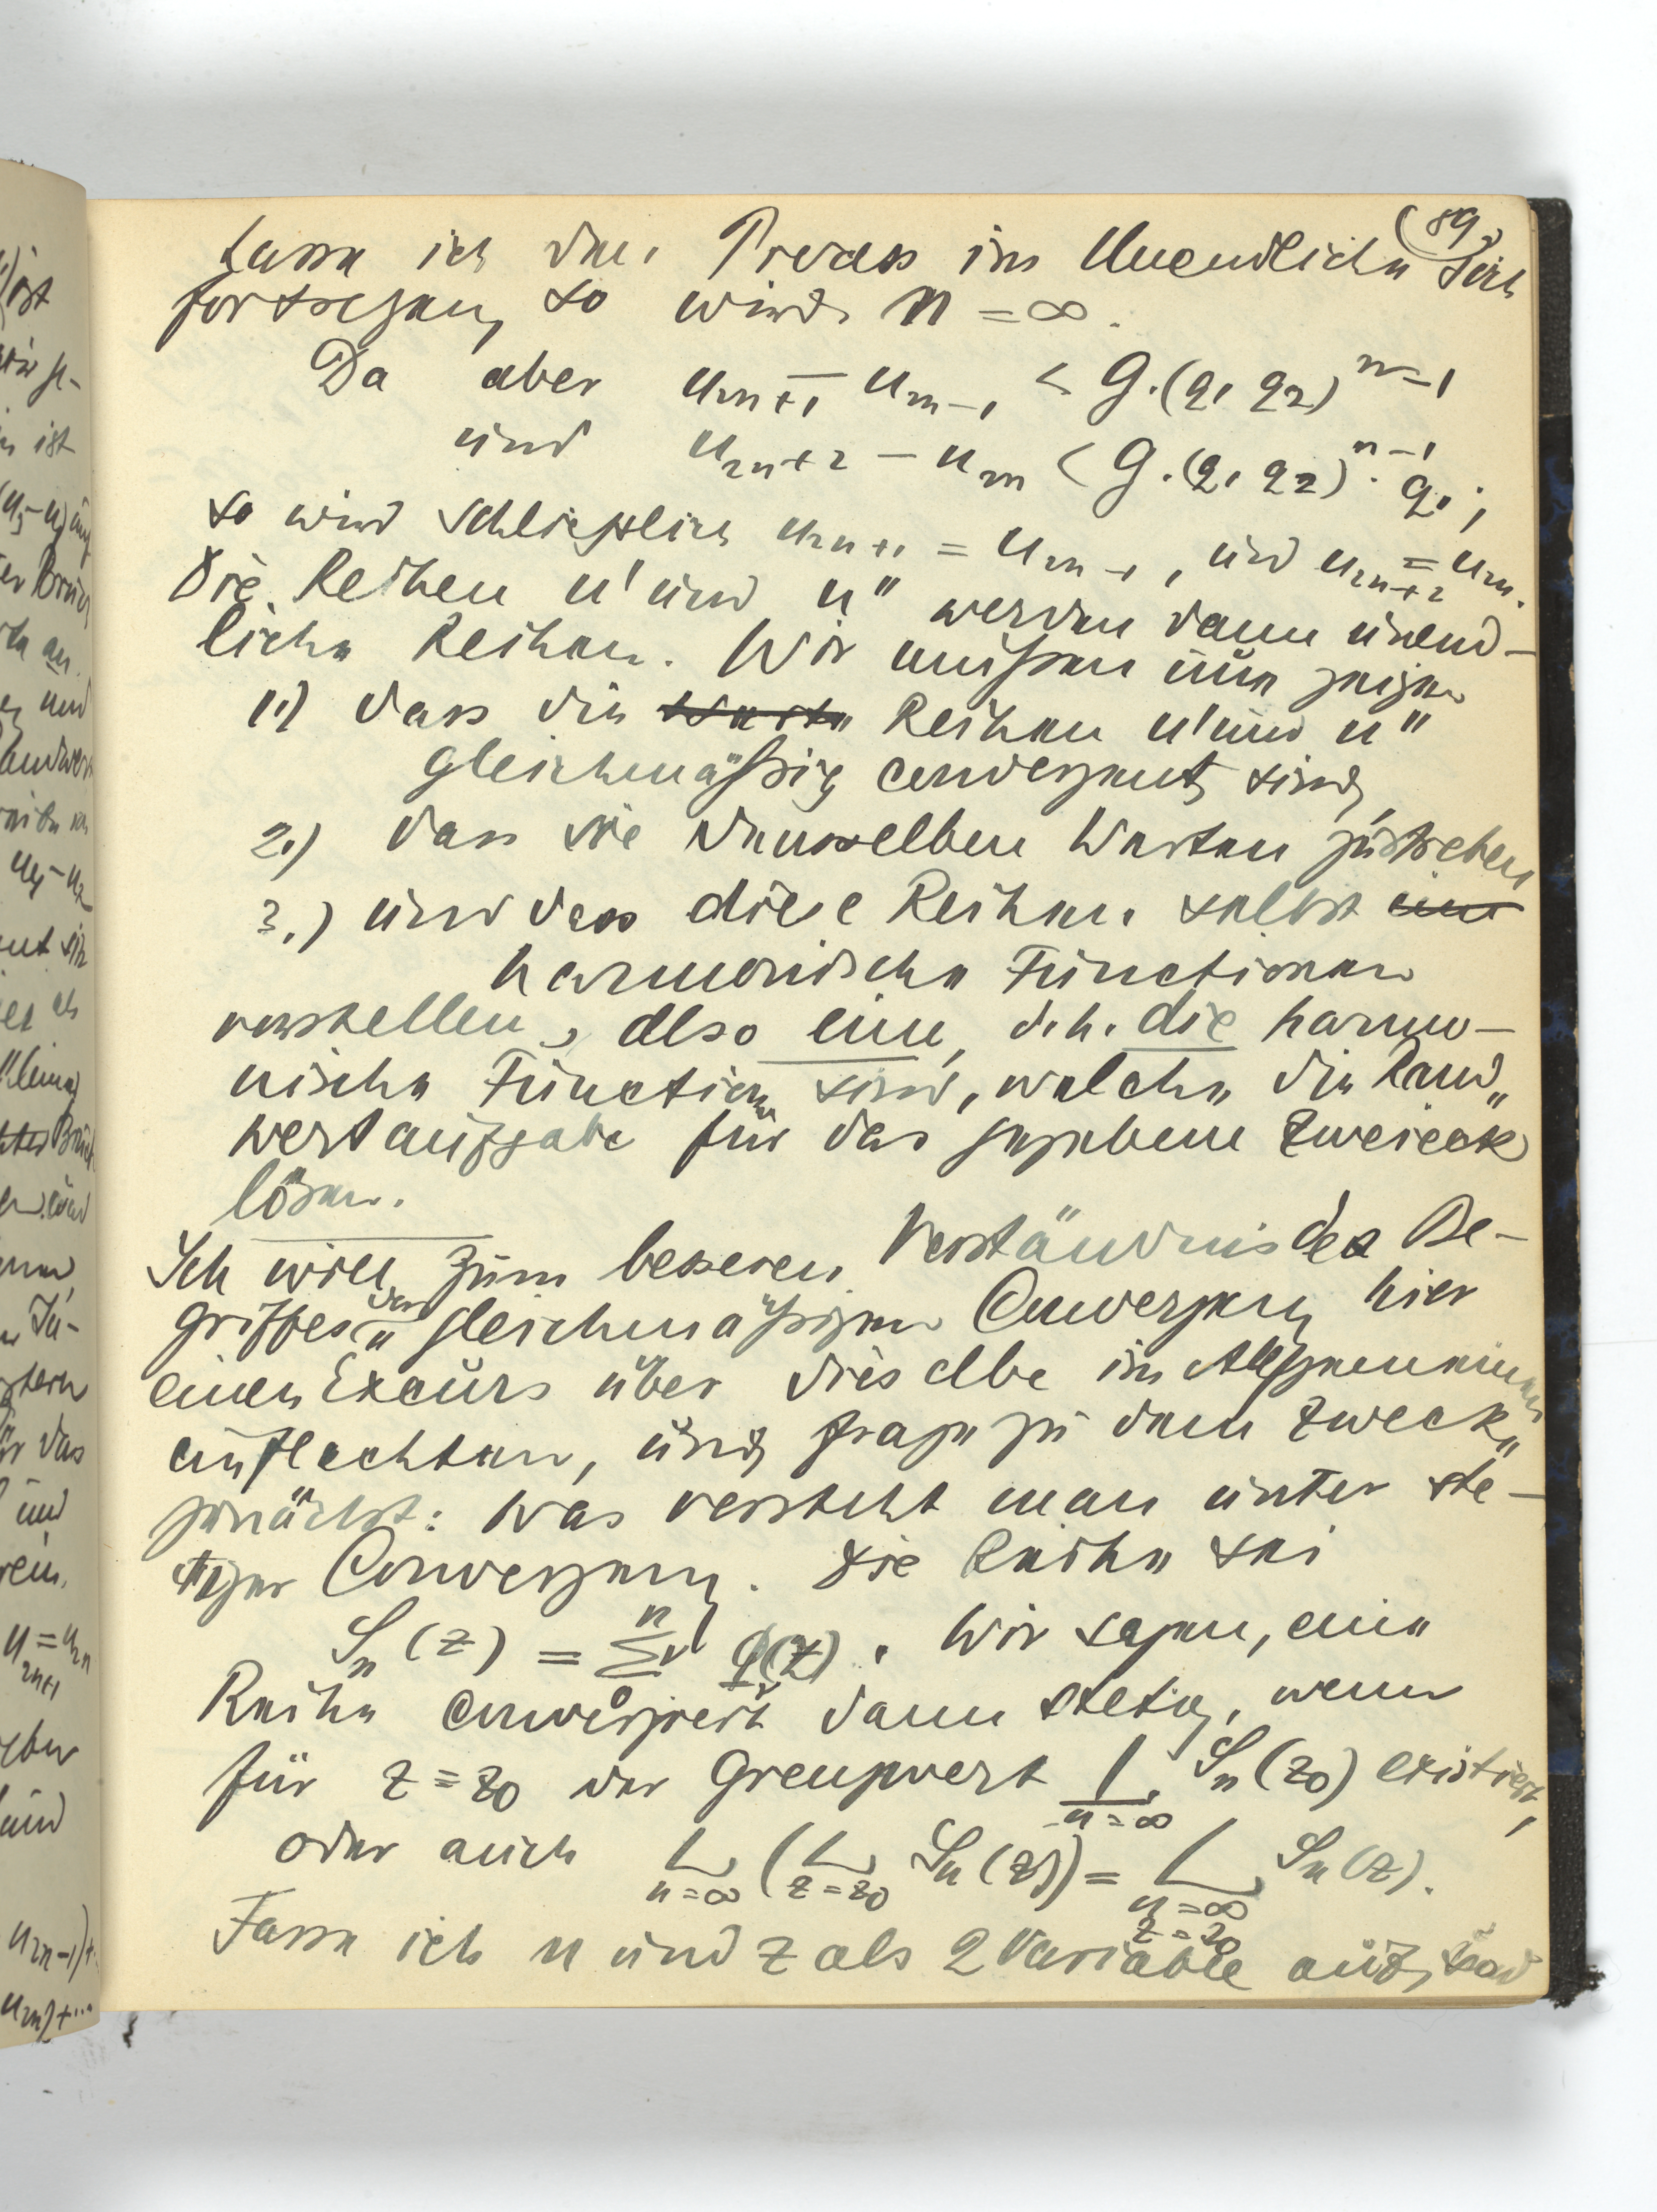 (89.
Lasse ich den Process ins Unendliche sich
fortsetzen, so wird n = ∞.
Da aber u₂ₙ₊₁ − u₂ₙ₋₁ < G.(q₁ q₂)ⁿ⁻¹
und u₂ₙ₊₂ − u₂ₙ < G.(q₁ q₂)ⁿ⁻¹. q₁;
so wird schliesslich u₂ₙ₊₁ = u₂ₙ₋₁, und u₂ₙ₊₂ = u₂ₙ.
Die Reihen u' und u" werden dann unend-
liche Reihen. Wir müssen nun zeigen
1.) dass die Werte Reihen u' und u"
gleichmäßig convergent sind,
2.) dass sie denselben Werten zustreben
3.) und dass diese Reihen selbst eine
harmonische Functionen
vorstellen, also eine, d.h. die harmo-
nische Function sind, welche die Rand„
wertaufgabe für das gegebene Zweieck
lösen.
Ich will zum besseren Verständnis des Be-
griffes der gleichmäßigen Convergenz hier
einen Excurs über dieselbe im Allgemeinen
einflechten, und frage zu dem Zwecke
zunächst: Was versteht man unter ste-
tiger Convergenz. Die Reihe sei
Sₙ(z) = Σ φᵥ(z). Wir sagen, eine
Reihe convergiert dann stetig, wenn
für z = z₀ der Grenzwert L Sₙ(z₀) existiert,
n = ∞
oder auch L (L Sₙ(z)) = L Sₙ(z).
n = ∞ z = z₀ n = ∞
z = z₀
Fasse ich n und z als 2 Variable auf,